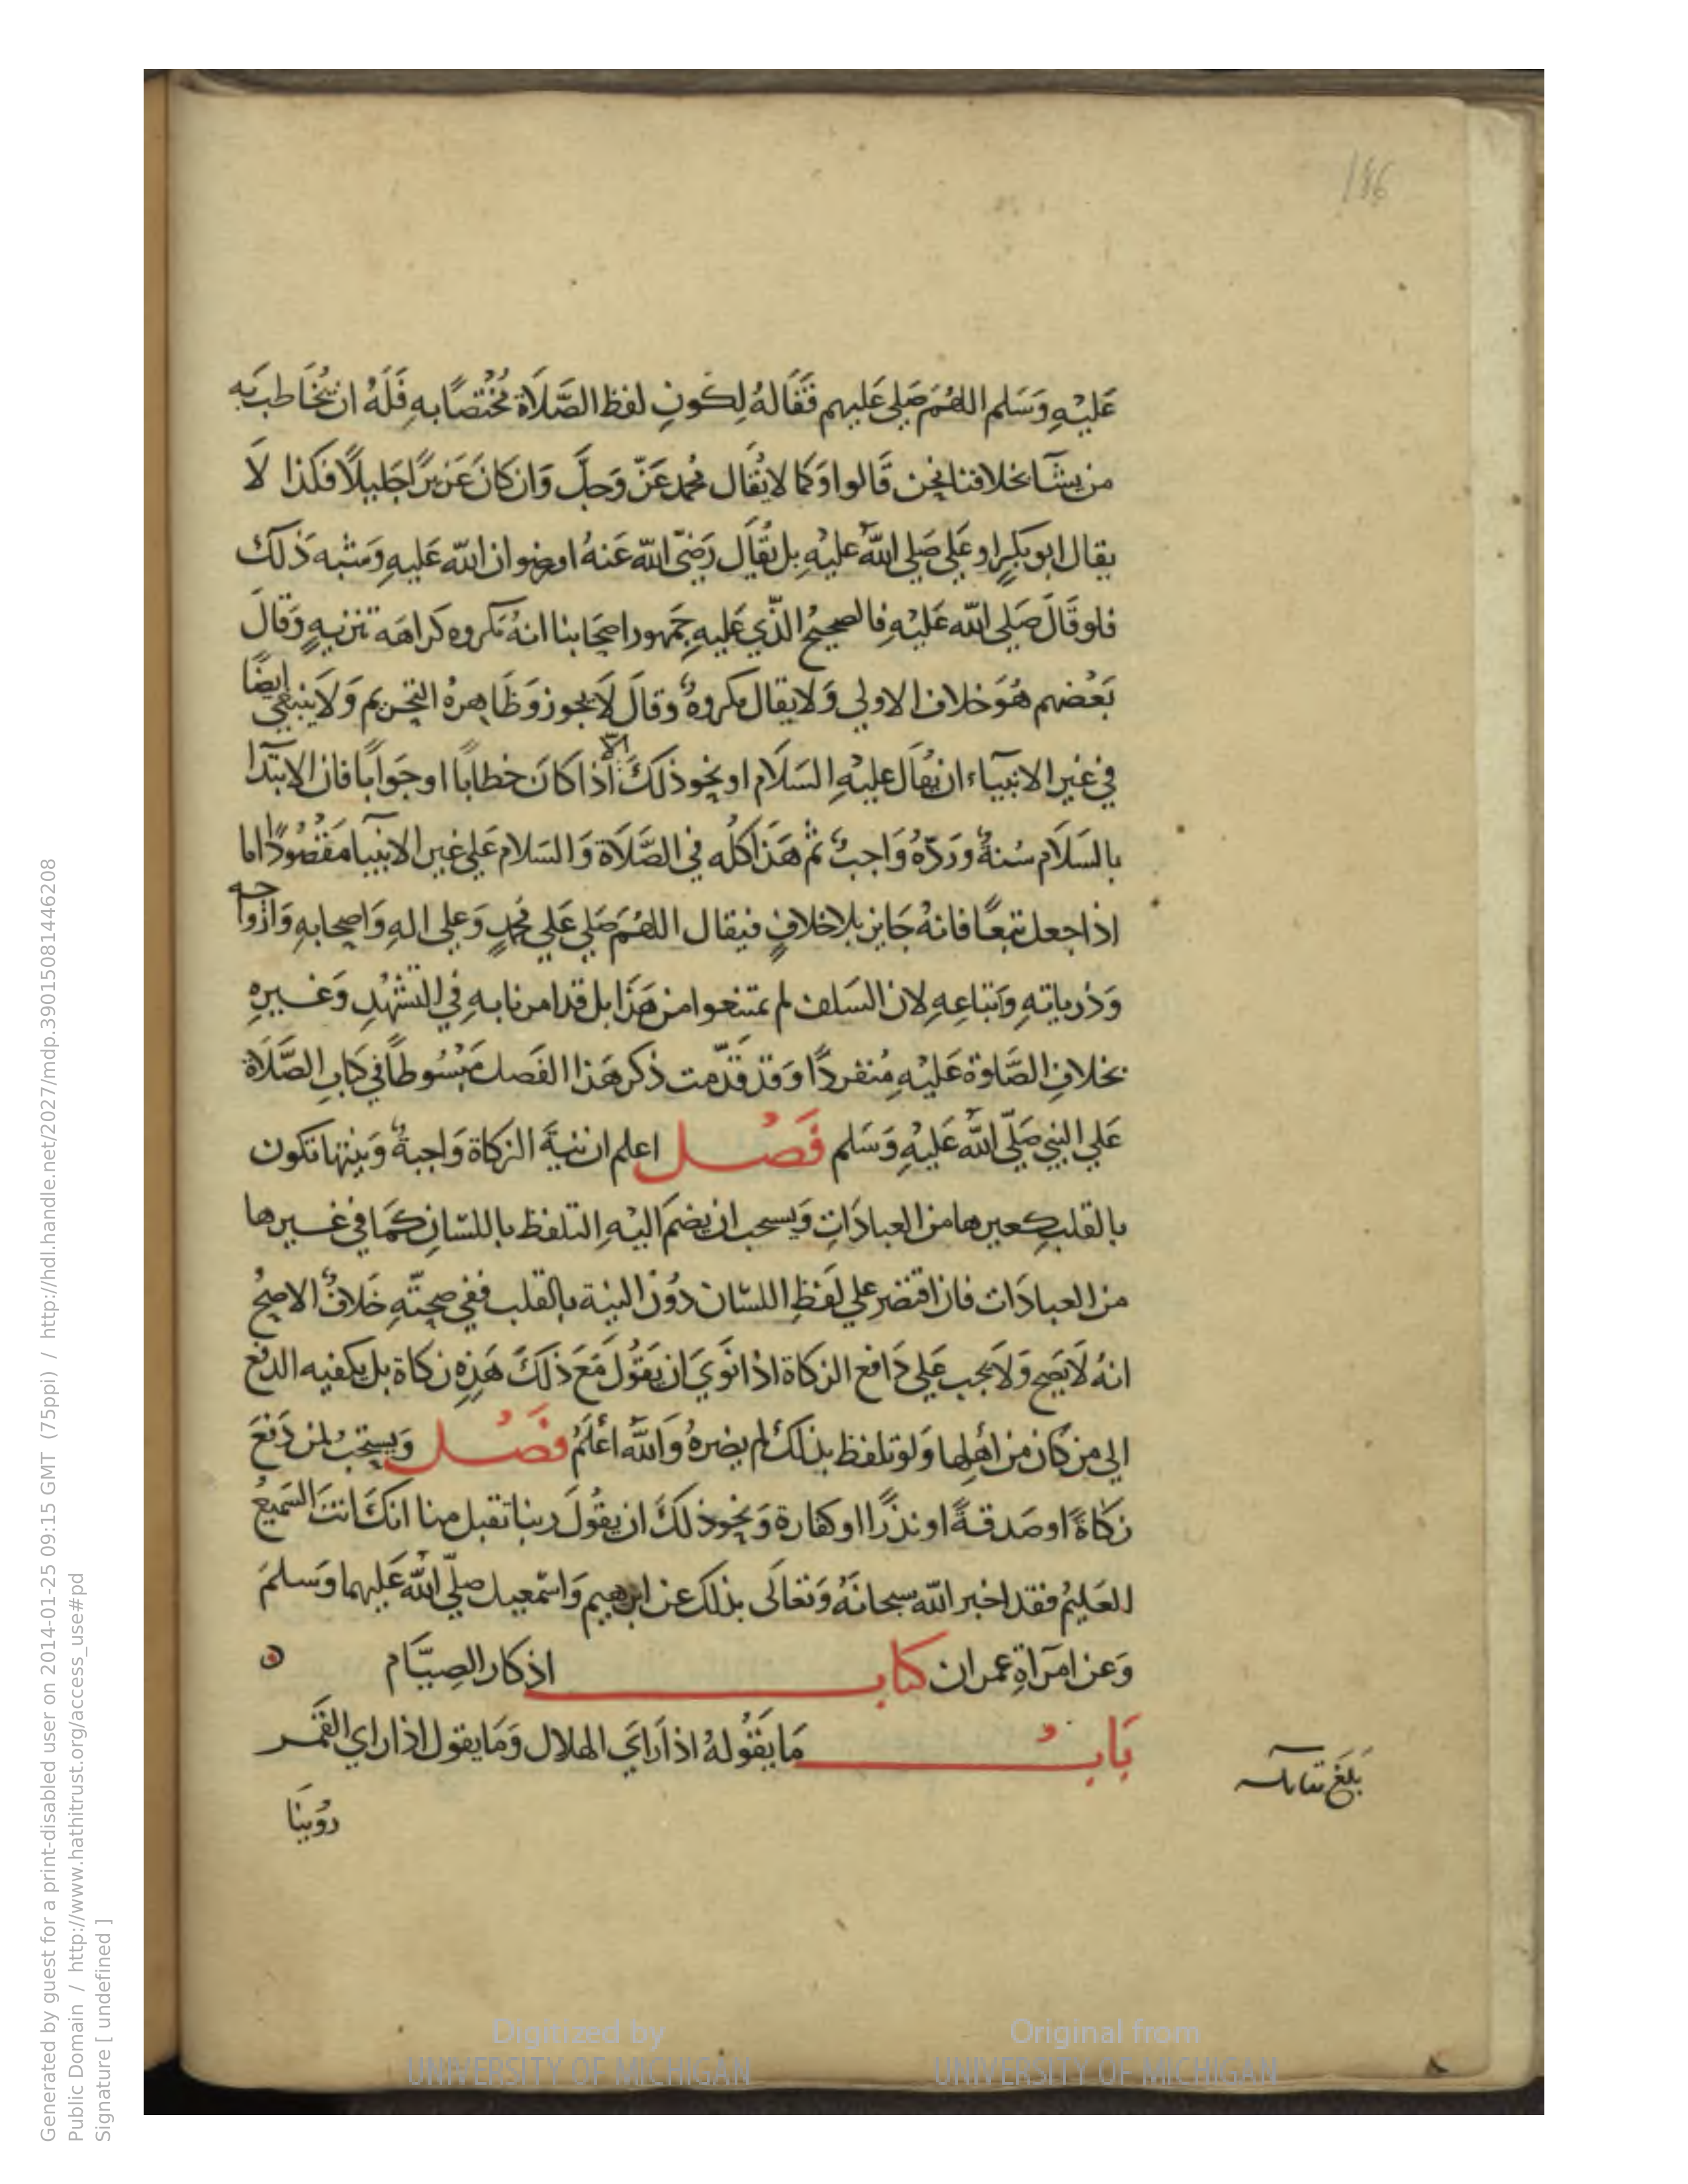 186
عَليْهِ وَسَلم اللهُمَ صَلي عَليهم فَقَالهُ لِكونِ لفظ الصَّلَاة مُخْتصًا بهِ فَلَهُ ان يُخَاطب بَه
من يشَآ بخلافنا نحن قَالوا وَكما لا يُقَال محمد عَزّ وَجلَّ وَان كانَ عَزيزًا جَليلًا فكذا لَا
يقال ابو بكرٍ او عَلي صَلي اللهُ عليْهِ بل يُقَال رَضيَ اللّه عَنهُ او رضوان اللّه عَليهِ وَشبه ذَلك
فلو قَالَ صَلي اللّه عَليْهِ فالصحيحُ الذّي عَليهِ جَمهور اصحَابنا انهُ مكروه كراهَه تنزيهٍ وَقالَ
بَعْضهم هُوَ خلاف الاولي وَلا يقال مكروهٌ وَقالَ لَا يجوز وَظَاهرهُ التحريم وَلَا ينبغي ايضًا
في غير الانبيآء ان يُقَال عليْهِ السَلَام او نحو ذلكَ الّا اذا كانَ خطابًا او جَوابًا فان الابتدَآ
بالسَلَام سُنةٌ وَردّهُ وَاجبٌ ثم هَذا كلُه في الصَّلَاة وَالسَلام عَلي غير الانبيآ مَقْصُودًا اما
اذا جعل تبعًا فانهُ جَايز بلا خلافٍ فيقال اللهُمَ صَلي عَلي محُمدٍ وَعلي الهِ وَاصحابهِ وَازواجه
وَذرياتهِ وَاتباعهِ لان السَلف لم يمتنعوا من هَذا بل قد امرنا بهِ في التشهُدِ وَغيرهِ
بخلافِ الصَّلوة عَليْهِ مُنفردًا وَقد قَدّمت ذكر هَذا الفَصل مَبْسُوطًا في كتَابِ الصَّلَاة
عَلي النبي صَلّي اللهُ عَليْهِ وَسَلم فَصْل اعلم ان نيةَ الزكاة وَاجبةٌ وَنيتها تكون
بالقلبِ كغيرها من العبادَاتِ وَيستحب ان يضمَ اليْهِ التلفظ باللسَانِ كَمَا في غيرها
من العبادَات فان اقتصَر علي لفَظِ اللسَان دُونَ النية بالقلب ففي صحتّهِ خَلافٌ الاصحُ
انهُ لَا يَصح وَلا يجب عَلي دَافع الزكاة اذا نَوَي ان يَقُول مَعَ ذلكَ هَذِهِ زكاة بل يكفيه الدفع
الي من كان من اهلها وَلو تلفظ بذلكَ لم يضرهُ وَاللهُ اعْلَمُ فَصْل وَيستحَبُ لمن دَفعَ
زكاةً او صَدقةً او نذرًا او كفارة وَنحو ذلكَ ان يقُولَ ربنا تقبل منا انكَ انتَ السَميعُ
العَليمُ فقد اخبر اللّه سبحانَهُ وَتعَالَى بذلك عن ابرهيم وَاسْمعيل صلّي اللهُ عَليهما وَسلمَ
وَعن امرَاةِ عمران كتاب اذكار الصِيَام
بَابُ مَا يَقُولهُ اذا رَايَ الهلال وَمَا يقول اذا راي القَمَر
بَلغَ مقابله
رُوينَا
Generated by guest for a print-disabled user on 2014-01-25 09:15 GMT (75ppi) / http://hdl.handle.net/2027/mdp.39015081446208
Public Domain / http://www.hathitrust.org/access_use#pd
Signature [ undefined ]
Digitized by
UNIVERSITY OF MICHIGAN
Original from
UNIVERSITY OF MICHIGAN